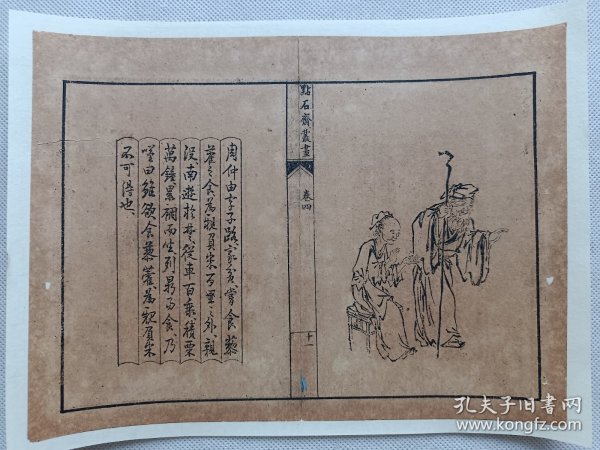 點石齋叢畫
卷四
十一
周仲由字子路家貧嘗食藜
藿之食為親負米百里之外親
沒南遊於楚從車百乘積粟
萬鍾累裀而坐列鼎而食乃
嘆曰雖欲食藜藿為親負米
不可得也
孔夫子旧书网
www.kongfz.com